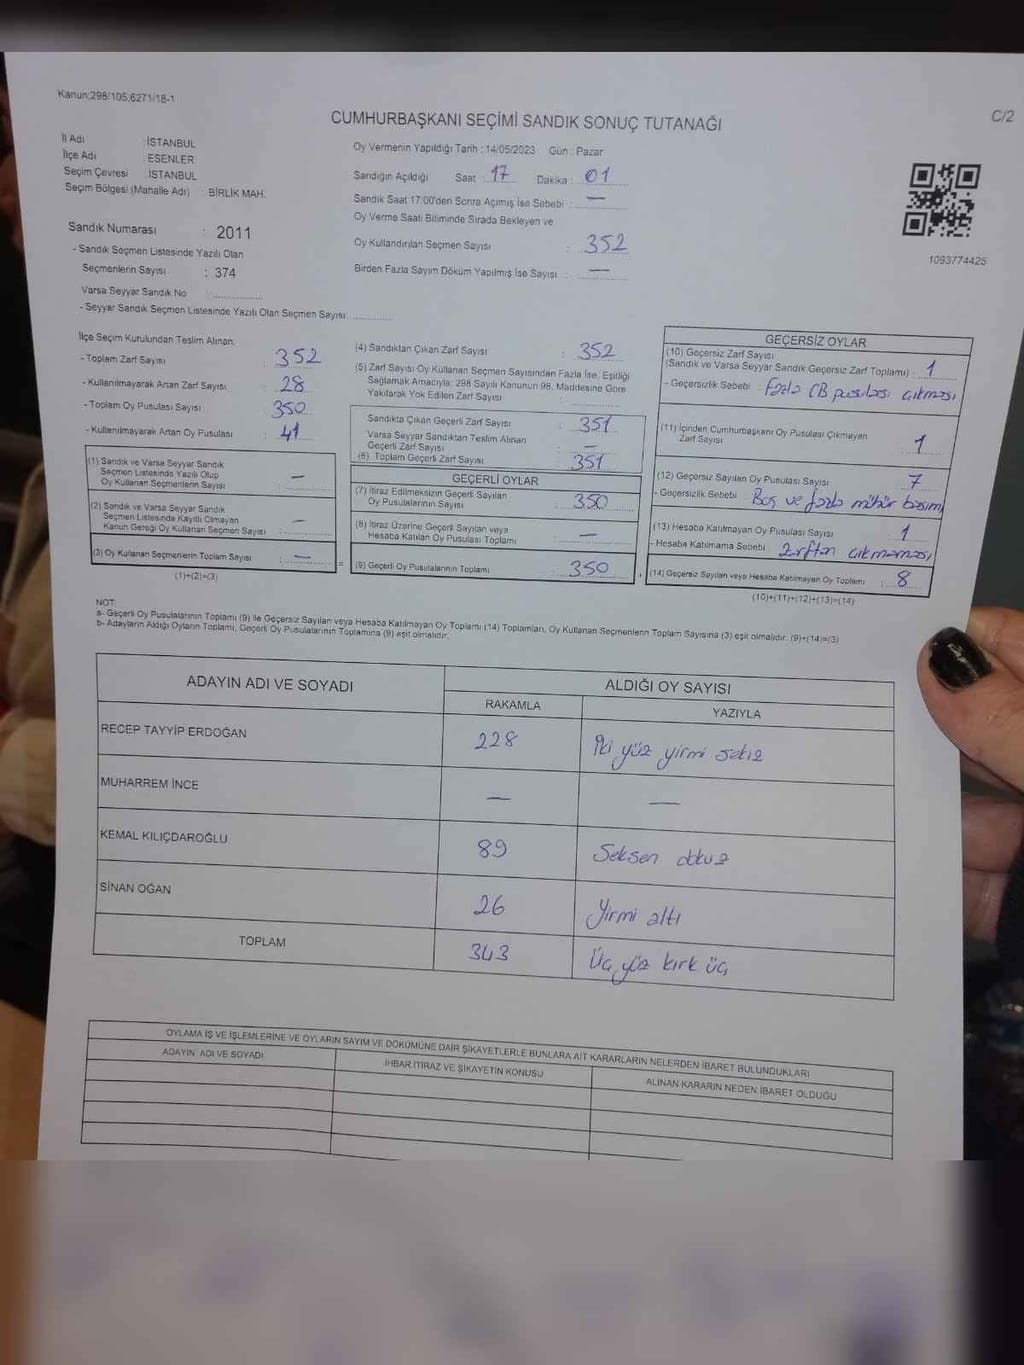 Kanun;298/105,6271/18-1
C/2
CUMHURBAŞKANI SEÇİMİ SANDIK SONUÇ TUTANAĞI
İl Adı : İSTANBUL
İlçe Adı : ESENLER
Seçim Çevresi : İSTANBUL
Seçim Bölgesi (Mahalle Adı) : BİRLİK MAH.
Oy Vermenin Yapıldığı Tarih : 14/05/2023 Gün : Pazar
Sandığın Açıldığı Saat : 17 Dakika : 01
Sandık Saat 17:00'den Sonra Açılmış İse Sebebi : —
Oy Verme Saati Bitiminde Sırada Bekleyen ve
Oy Kullandırılan Seçmen Sayısı : 352
Birden Fazla Sayım Döküm Yapılmış İse Sayısı : —
1093774425
Sandık Numarası : 2011
- Sandık Seçmen Listesinde Yazılı Olan
Seçmenlerin Sayısı : 374
Varsa Seyyar Sandık No :
- Seyyar Sandık Seçmen Listesinde Yazılı Olan Seçmen Sayısı:
İlçe Seçim Kurulundan Teslim Alınan:
- Toplam Zarf Sayısı : 352
- Kullanılmayarak Artan Zarf Sayısı : 28
- Toplam Oy Pusulası Sayısı : 350
- Kullanılmayarak Artan Oy Pusulası : 41
(1) Sandık ve Varsa Seyyar Sandık
Seçmen Listesinde Yazılı Olup
Oy Kullanan Seçmenlerin Sayısı : —
(2) Sandık ve Varsa Seyyar Sandık
Seçmen Listesinde Kayıtlı Olmayan
Kanun Gereği Oy Kullanan Seçmen Sayısı : —
(3) Oy Kullanan Seçmenlerin Toplam Sayısı : —
(1)+(2)=(3)
(4) Sandıktan Çıkan Zarf Sayısı : 352
(5) Zarf Sayısı Oy Kullanan Seçmen Sayısından Fazla İse, Eşitliği
Sağlamak Amacıyla; 298 Sayılı Kanunun 98. Maddesine Göre
Yakılarak Yok Edilen Zarf Sayısı :
Sandıkta Çıkan Geçerli Zarf Sayısı : 351
Varsa Seyyar Sandıktan Teslim Alınan
Geçerli Zarf Sayısı : —
(6) Toplam Geçerli Zarf Sayısı : 351
GEÇERLİ OYLAR
(7) İtiraz Edilmeksizin Geçerli Sayılan
Oy Pusulalarının Sayısı : 350
(8) İtiraz Üzerine Geçerli Sayılan veya
Hesaba Katılan Oy Pusulası Toplamı : —
(9) Geçerli Oy Pusulalarının Toplamı : 350
GEÇERSİZ OYLAR
(10) Geçersiz Zarf Sayısı
(Sandık ve Varsa Seyyar Sandık Geçersiz Zarf Toplamı) : 1
- Geçersizlik Sebebi : Fazla CB pusulası çıkması
(11) İçinden Cumhurbaşkanı Oy Pusulası Çıkmayan
Zarf Sayısı : 1
(12) Geçersiz Sayılan Oy Pusulası Sayısı : 7
- Geçersizlik Sebebi : Boş ve fazla mühür basım
(13) Hesaba Katılmayan Oy Pusulası Sayısı : 1
- Hesaba Katılmama Sebebi : Zrftan çıkmaması
(14) Geçersiz Sayılan veya Hesaba Katılmayan Oy Toplamı : 8
(10)+(11)+(12)+(13)=(14)
NOT:
a- Geçerli Oy Pusulalarının Toplamı (9) ile Geçersiz Sayılan veya Hesaba Katılmayan Oy Toplamı (14) Toplamları, Oy Kullanan Seçmenlerin Toplam Sayısına (3) eşit olmalıdır. (9)+(14)=(3)
b- Adayların Aldığı Oyların Toplamı, Geçerli Oy Pusulalarının Toplamına (9) eşit olmalıdır.
ADAYIN ADI VE SOYADI
ALDIĞI OY SAYISI
RAKAMLA YAZIYLA
RECEP TAYYİP ERDOĞAN 228 İki yüz yirmi sekiz
MUHARREM İNCE — —
KEMAL KILIÇDAROĞLU 89 Seksen dokuz
SİNAN OĞAN 26 Yirmi altı
TOPLAM 343 Üç yüz kırk üç
OYLAMA İŞ VE İŞLEMLERİNE VE OYLARIN SAYIM VE DÖKÜMÜNE DAİR ŞİKAYETLERLE BUNLARA AİT KARARLARIN NELERDEN İBARET BULUNDUKLARI
ADAYIN ADI VE SOYADI İHBAR İTİRAZ VE ŞİKAYETİN KONUSU ALINAN KARARIN NEDEN İBARET OLDUĞU